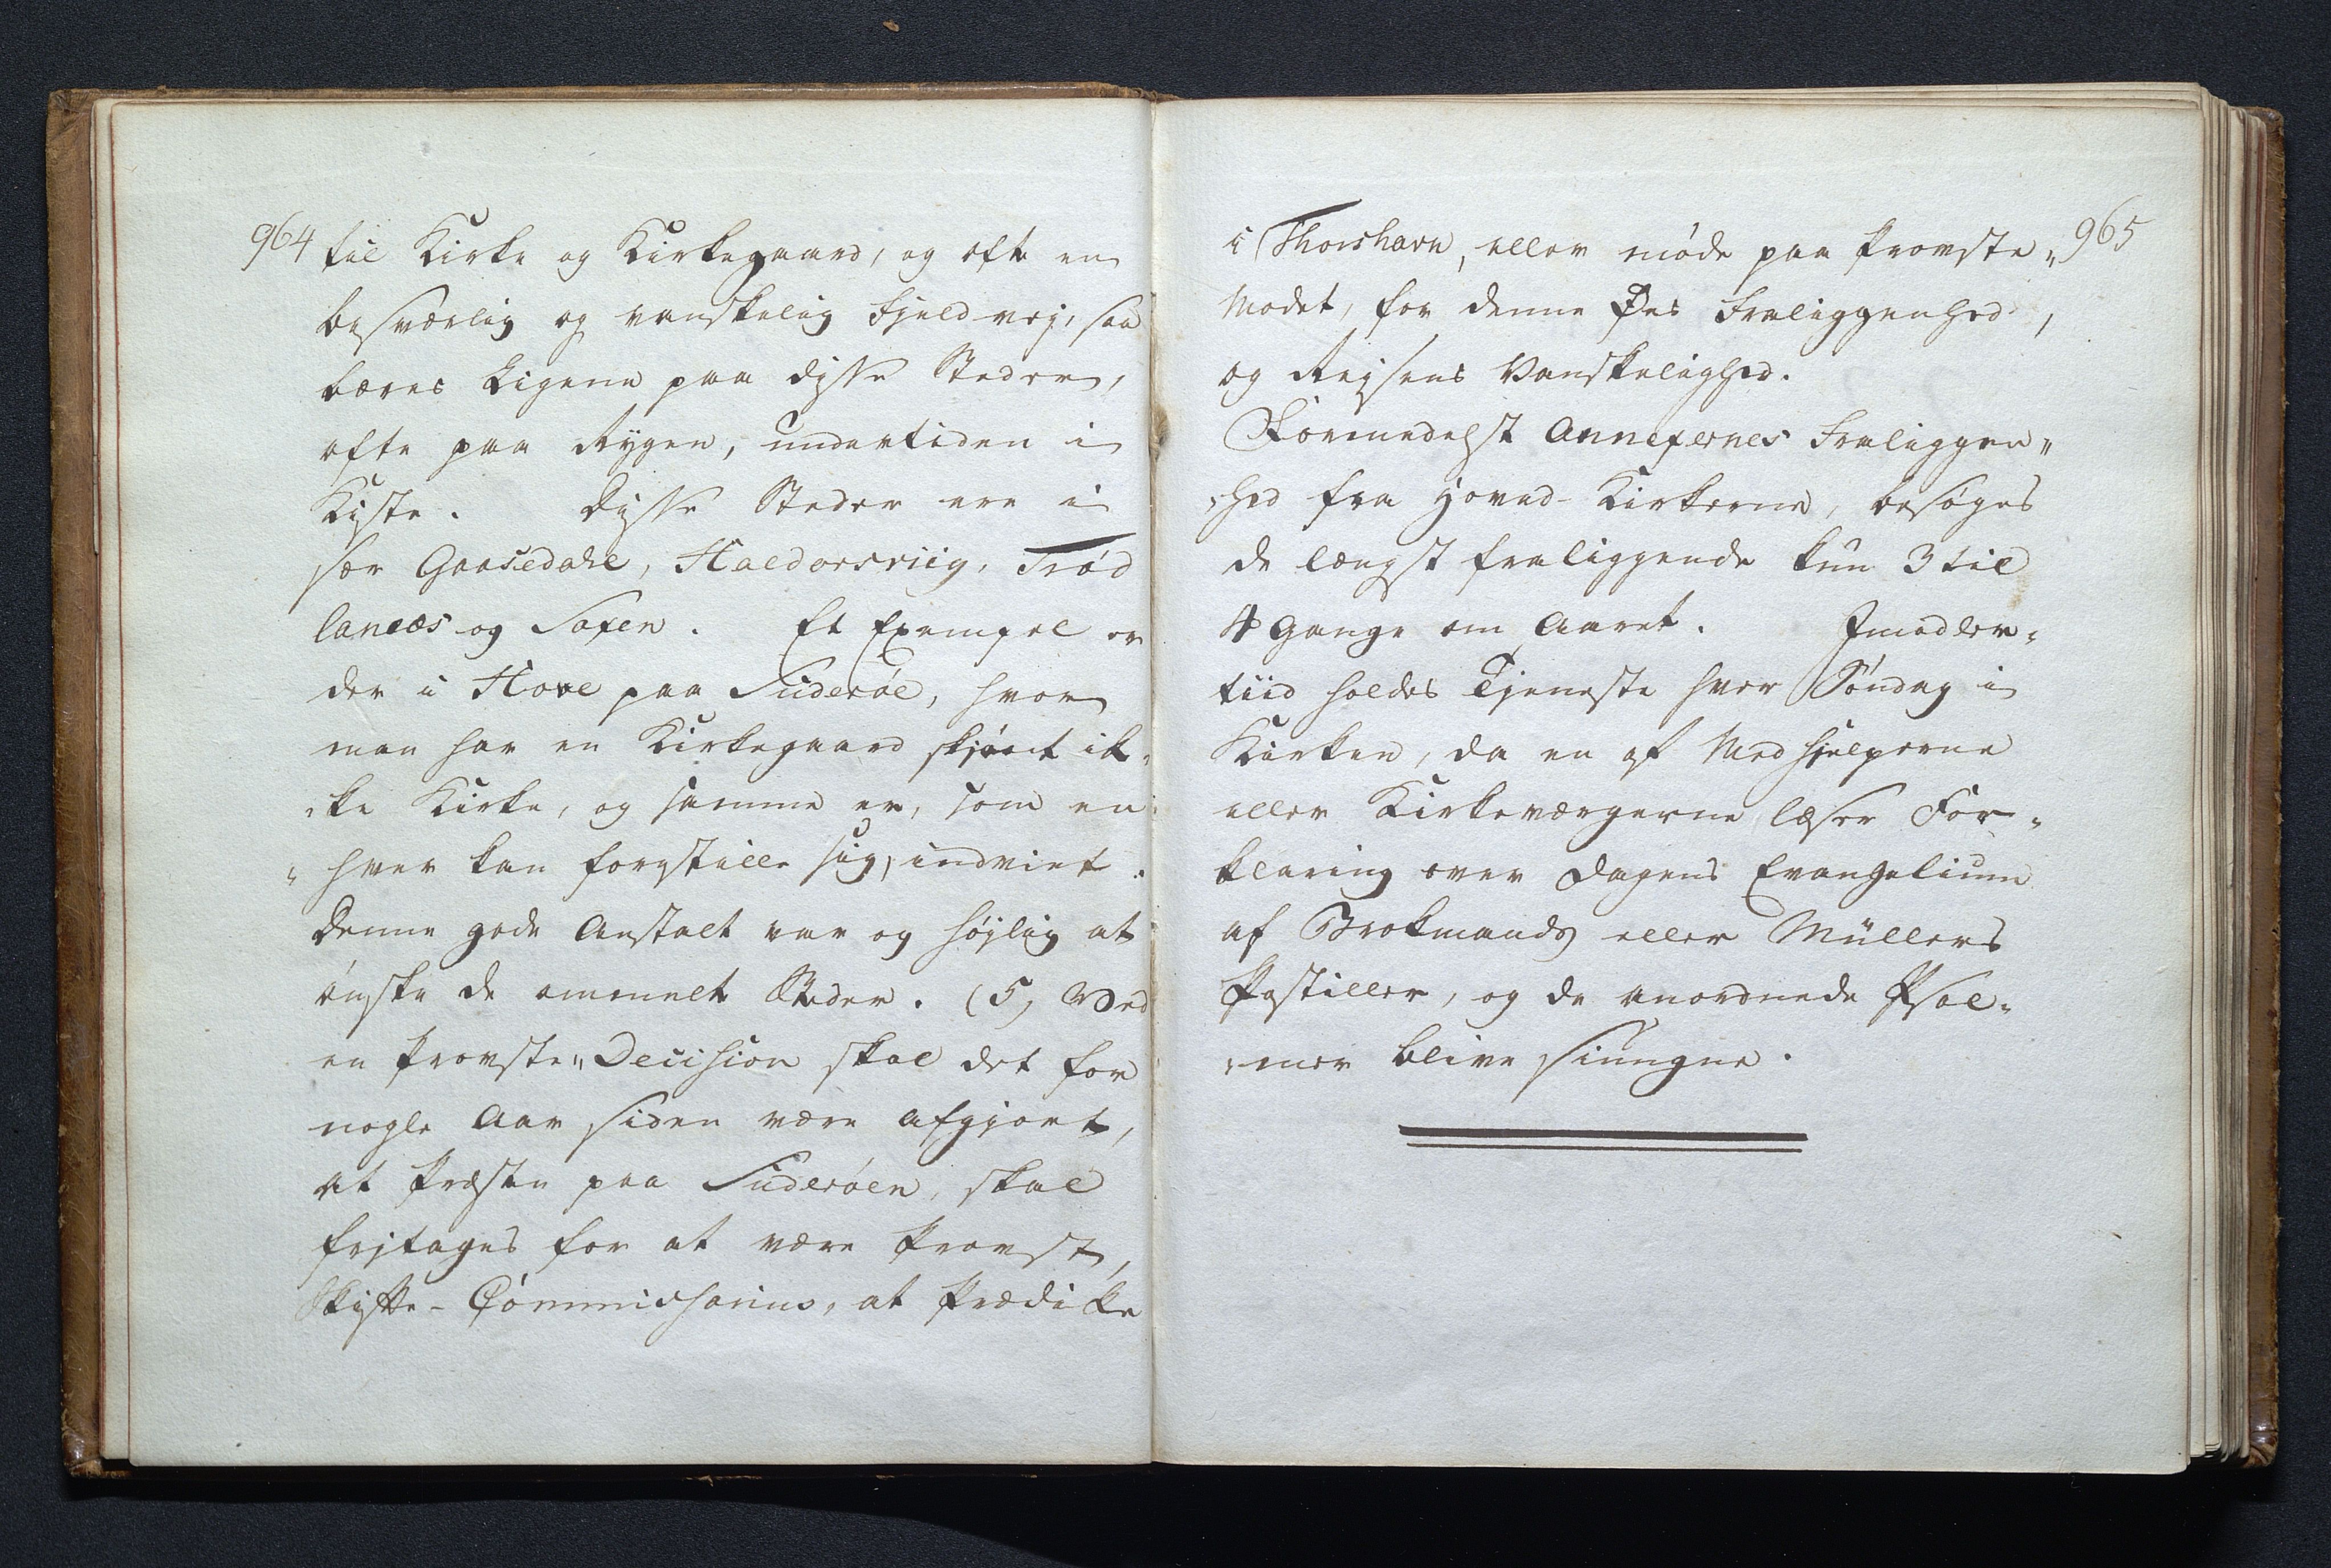 964
til Kirke og Kirkegaard, og oft en
besværlig og vanskelig Fjeldvej, saa
bæres Ligene paa disse Steder,
ofte paa Rygen, undertiden i
Kiste. Disse Steder ere i
sær Gaasedahl, Haldorsviig, Trød
lanæs og Saxen. Et Exempel er
der i Hove paa Suderöe, hvor
man har en Kirkegaard skjönt ik-
-ke Kirke, og samme er, som en
"hver kan forestille sig, indviet.
Denne gode Anstalt var og højlig at
ønske de ommelte Steder. (5) Ved
en Provste"Decision skal det for
nogle Aar siden være afgjort,
at Præsten paa Suderöen, skal
fritages for at være Provst,
Skifte-Commissarius, at Prædike
965
i Thorshavn, eller møde paa Provste"
Modet, for denne Øes Fraliggenhed,
og Rejsens Vanskelighed.
Formedelst Annexernes Fraliggen"
-hed fra Hoved-Kirkerne, besøges
de længst fraliggende kun 3 til
4 Gange om Aaret. Imidler-
tiid holdes Tjeneste hver Søndag i
Kirken, da en af Medhjelperne
eller Kirkeværgerne læser For-
klaring over Dagens Evangelium
af Brokmands eller Müllers
Postiller, og de anordnede Psal-
-mer blive siungne.